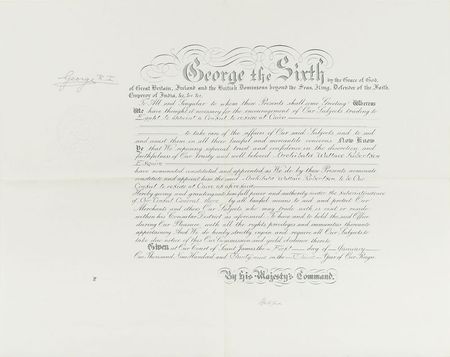 George R.I.
George the Sixth by the Grace of God,
of Great Britain, Ireland and the British Dominions beyond the Seas, King, Defender of the Faith,
Emperor of India, &c, &c, &c.
To All and Singular to whom these Presents shall come, Greeting! Whereas
We have thought it necessary for the encouragement of Our Subjects trading to
Egypt to appoint a Consul to reside at Cairo
to take care of the affairs of Our said Subjects and to aid
and assist them in all their lawful and mercantile concerns Now Know
Ye that We reposing especial trust and confidence in the discretion and
faithfulness of Our Trusty and well beloved Archibald Wallace Robertson
Esquire
have nominated constituted and appointed as We do by these Presents nominate
constitute and appoint him the said Archibald Wallace Robertson to be Our
Consul to reside at Cairo as aforesaid
Hereby giving and granting unto him full power and authority under the Superintendence
of Our Consul General there by all lawful means to aid and protect Our
Merchants and others Our Subjects who may trade with or visit or reside
within his Consular District as aforesaid. To have and to hold the said Office
during Our Pleasure with all the rights privileges and immunities thereunto
appertaining And We do hereby strictly enjoin and require all Our Subjects to
take due notice of this Our Commission and yield obedience thereto
Given at Our Court of Saint James the First day of January
One Thousand Nine Hundred and Thirty in the Year of Our Reign
By His Majesty's Command.